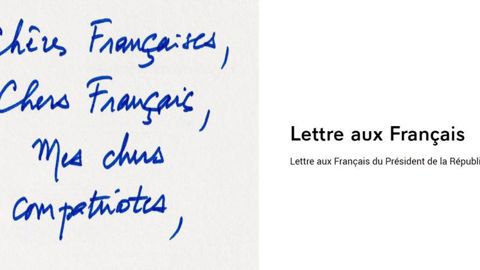 Chères Françaises,
Chers Français,
Mes chers
compatriotes,
Lettre aux Français
Lettre aux Français du Président de la Républi